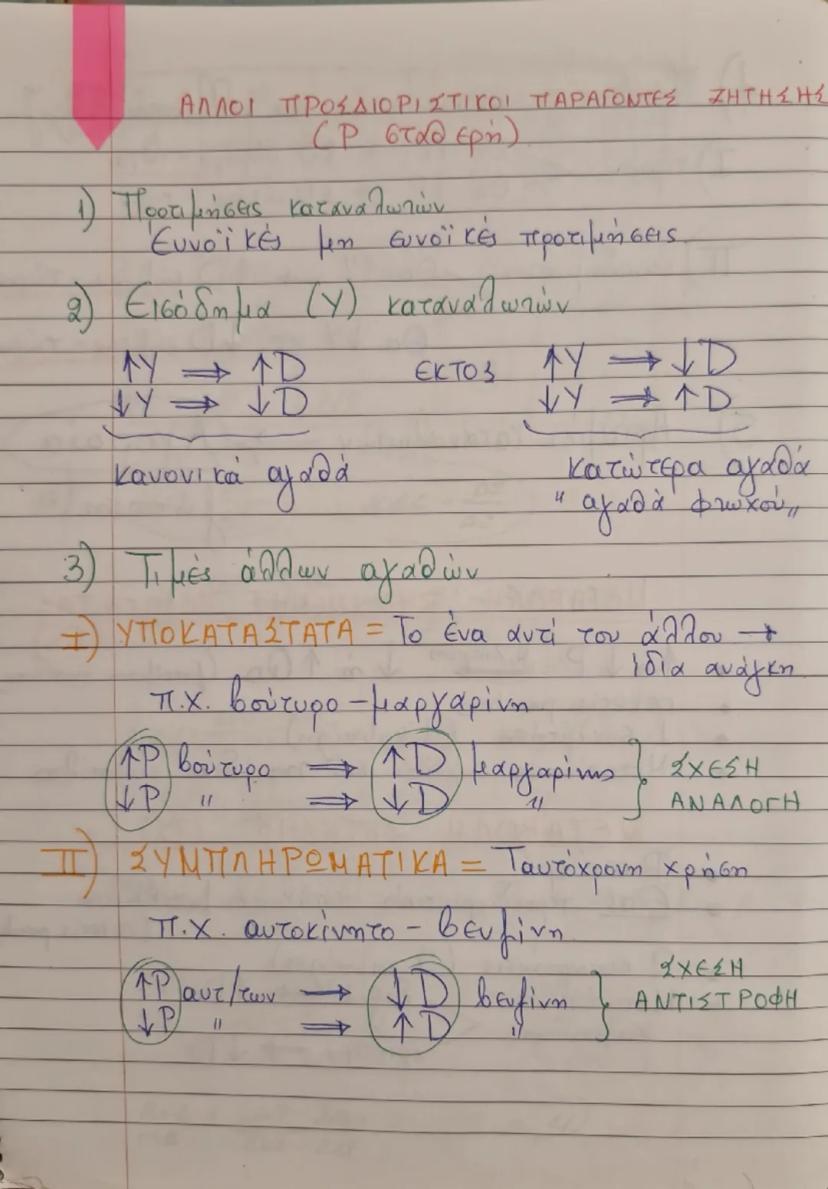 ΑΛΛΟΙ ΠΡΟΣΔΙΟΡΙΣΤΙΚΟΙ ΠΑΡΑΓΟΝΤΕΣ ΖΗΤΗΣΗΣ
(P σταθερή)
1) Προτιμήσεις καταναλωτών
Ευνοϊκές μη ευνοϊκές προτιμήσεις
2) Εισόδημα (Y) καταναλωτών
↑Y ⇒ ↑D ΕΚΤΟΣ ↑Y ⇒ ↓D
↓Y ⇒ ↓D ↓Y ⇒ ↑D
κανονικά αγαθά κατώτερα αγαθά
" αγαθά φτωχού "
3) Τιμές άλλων αγαθών
I) ΥΠΟΚΑΤΑΣΤΑΤΑ = Το ένα αντί του άλλου →
ίδια ανάγκη
π.χ. βούτυρο - μαργαρίνη
↑P βούτυρο ⇒ ↑D μαργαρίνης } ΣΧΕΣΗ
↓P " ⇒ ↓D " ΑΝΑΛΟΓΗ
II) ΣΥΜΠΛΗΡΩΜΑΤΙΚΑ = Ταυτόχρονη χρήση
π.χ. αυτοκίνητο - βενζίνη
ΣΧΕΣΗ
↑P αυτ/των → ↓D βενζίνη } ΑΝΤΙΣΤΡΟΦΗ
↓P " ⇒ ↑D "